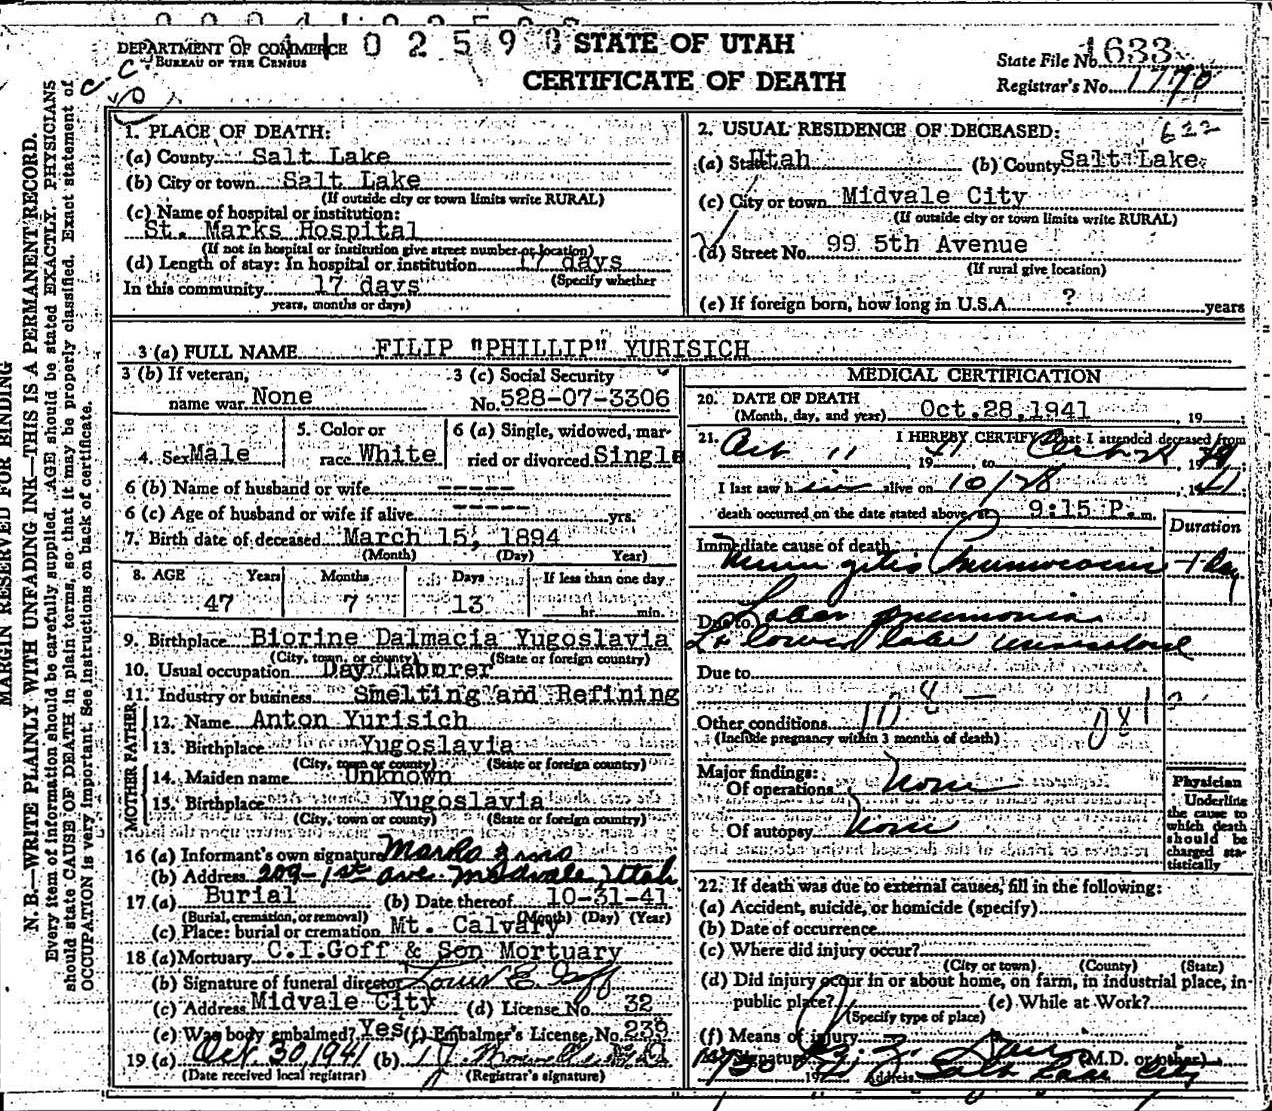 DEPARTMENT OF COMMERCE
BUREAU OF THE CENSUS
STATE OF UTAH
CERTIFICATE OF DEATH
State File No. 1633
Registrar's No. 1770
MARGIN RESERVED FOR BINDING
N. B.—WRITE PLAINLY WITH UNFADING INK—THIS IS A PERMANENT RECORD.
Every item of information should be carefully supplied. AGE should be stated EXACTLY. PHYSICIANS
should state CAUSE OF DEATH in plain terms, so that it may be properly classified. Exact statement of
OCCUPATION is very important. See instructions on back of certificate.
1. PLACE OF DEATH:
(a) County Salt Lake
(b) City or town Salt Lake
(If outside city or town limits write RURAL)
(c) Name of hospital or institution:
St. Marks Hospital
(If not in hospital or institution give street number or location)
(d) Length of stay: In hospital or institution 17 days
(Specify whether
In this community 17 days
years, months or days)
2. USUAL RESIDENCE OF DECEASED: 622
(a) State Utah (b) County Salt Lake
(c) City or town Midvale City
(If outside city or town limits write RURAL)
(d) Street No. 99 5th Avenue
(If rural give location)
(e) If foreign born, how long in U.S.A. ? years
3 (a) FULL NAME FILIP "PHILLIP" YURISICH
3 (b) If veteran, name war None
3 (c) Social Security No. 528-07-3306
4. Sex Male
5. Color or race White
6 (a) Single, widowed, married or divorced Single
6 (b) Name of husband or wife -----
6 (c) Age of husband or wife if alive ----- yrs.
7. Birth date of deceased March 15, 1894
(Month) (Day) Year)
8. AGE Years Months Days If less than one day
47 7 13 hr. min.
9. Birthplace Biorine Dalmacia Yugoslavia
(City, town, or county) (State or foreign country)
10. Usual occupation Day Laborer
11. Industry or business Smelting and Refining
FATHER
12. Name Anton Yurisich
13. Birthplace Yugoslavia
(City, town or county) (State or foreign country)
MOTHER
14. Maiden name Unknown
15. Birthplace Yugoslavia
(City, town or county) (State or foreign country)
16 (a) Informant's own signature
(b) Address 209-1st ave. Midvale, Utah
17 (a) Burial (b) Date thereof 10-31-41
(Burial, cremation, or removal) (Month) (Day) (Year)
(c) Place: burial or cremation Mt. Calvary
18 (a) Mortuary C.I.Goff & Son Mortuary
(b) Signature of funeral director Louis E. Goff
(c) Address Midvale City (d) License No. 32
(e) Was body embalmed? Yes (f) Embalmer's License No. 239
19 (a) Oct 30, 1941 (b)
(Date received local registrar) (Registrar's signature)
MEDICAL CERTIFICATION
20. DATE OF DEATH
(Month, day, and year) Oct.28,1941 , 19
21. I HEREBY CERTIFY that I attended deceased from
Oct 11, 1941, to Oct 28, 19
I last saw him alive on 10/28 1941
death occurred on the date stated above, at 9:15 P.m.
Duration
Immediate cause of death
Meningitis Pneumococcic 1 Day
Due to Lobar pneumonia
Lt lower lobe unresolved
Due to
108
Other conditions
(Include pregnancy within 3 months of death)
Major findings:
Of operations None
Of autopsy None
Physician
Underline
the cause to
which death
should be
charged sta-
tistically
22. If death was due to external causes, fill in the following:
(a) Accident, suicide, or homicide (specify)
(b) Date of occurrence
(c) Where did injury occur?
(City or town) (County) (State)
(d) Did injury occur in or about home, on farm, in industrial place, in
public place? (e) While at Work?
(Specify type of place)
(f) Means of injury
Signature (M.D. or other)
Address Salt Lake City